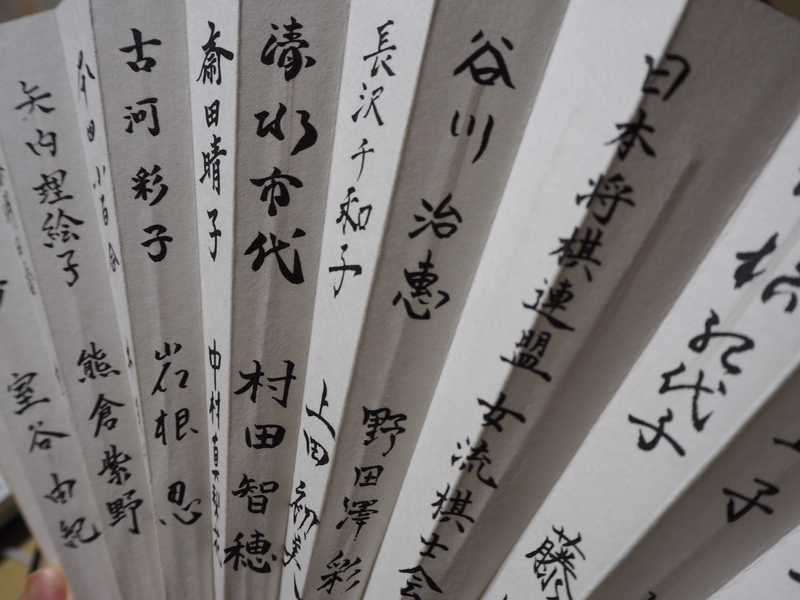 代子
子
藤
日本将棋連盟女流棋士会
谷川治恵
野田澤彩
長沢千和子
上田初美
清水市代
村田智穂
斎田晴子
中村真梨花
古河彩子
岩根忍
本田小百合
熊倉紫野
矢内理絵子
室谷由紀